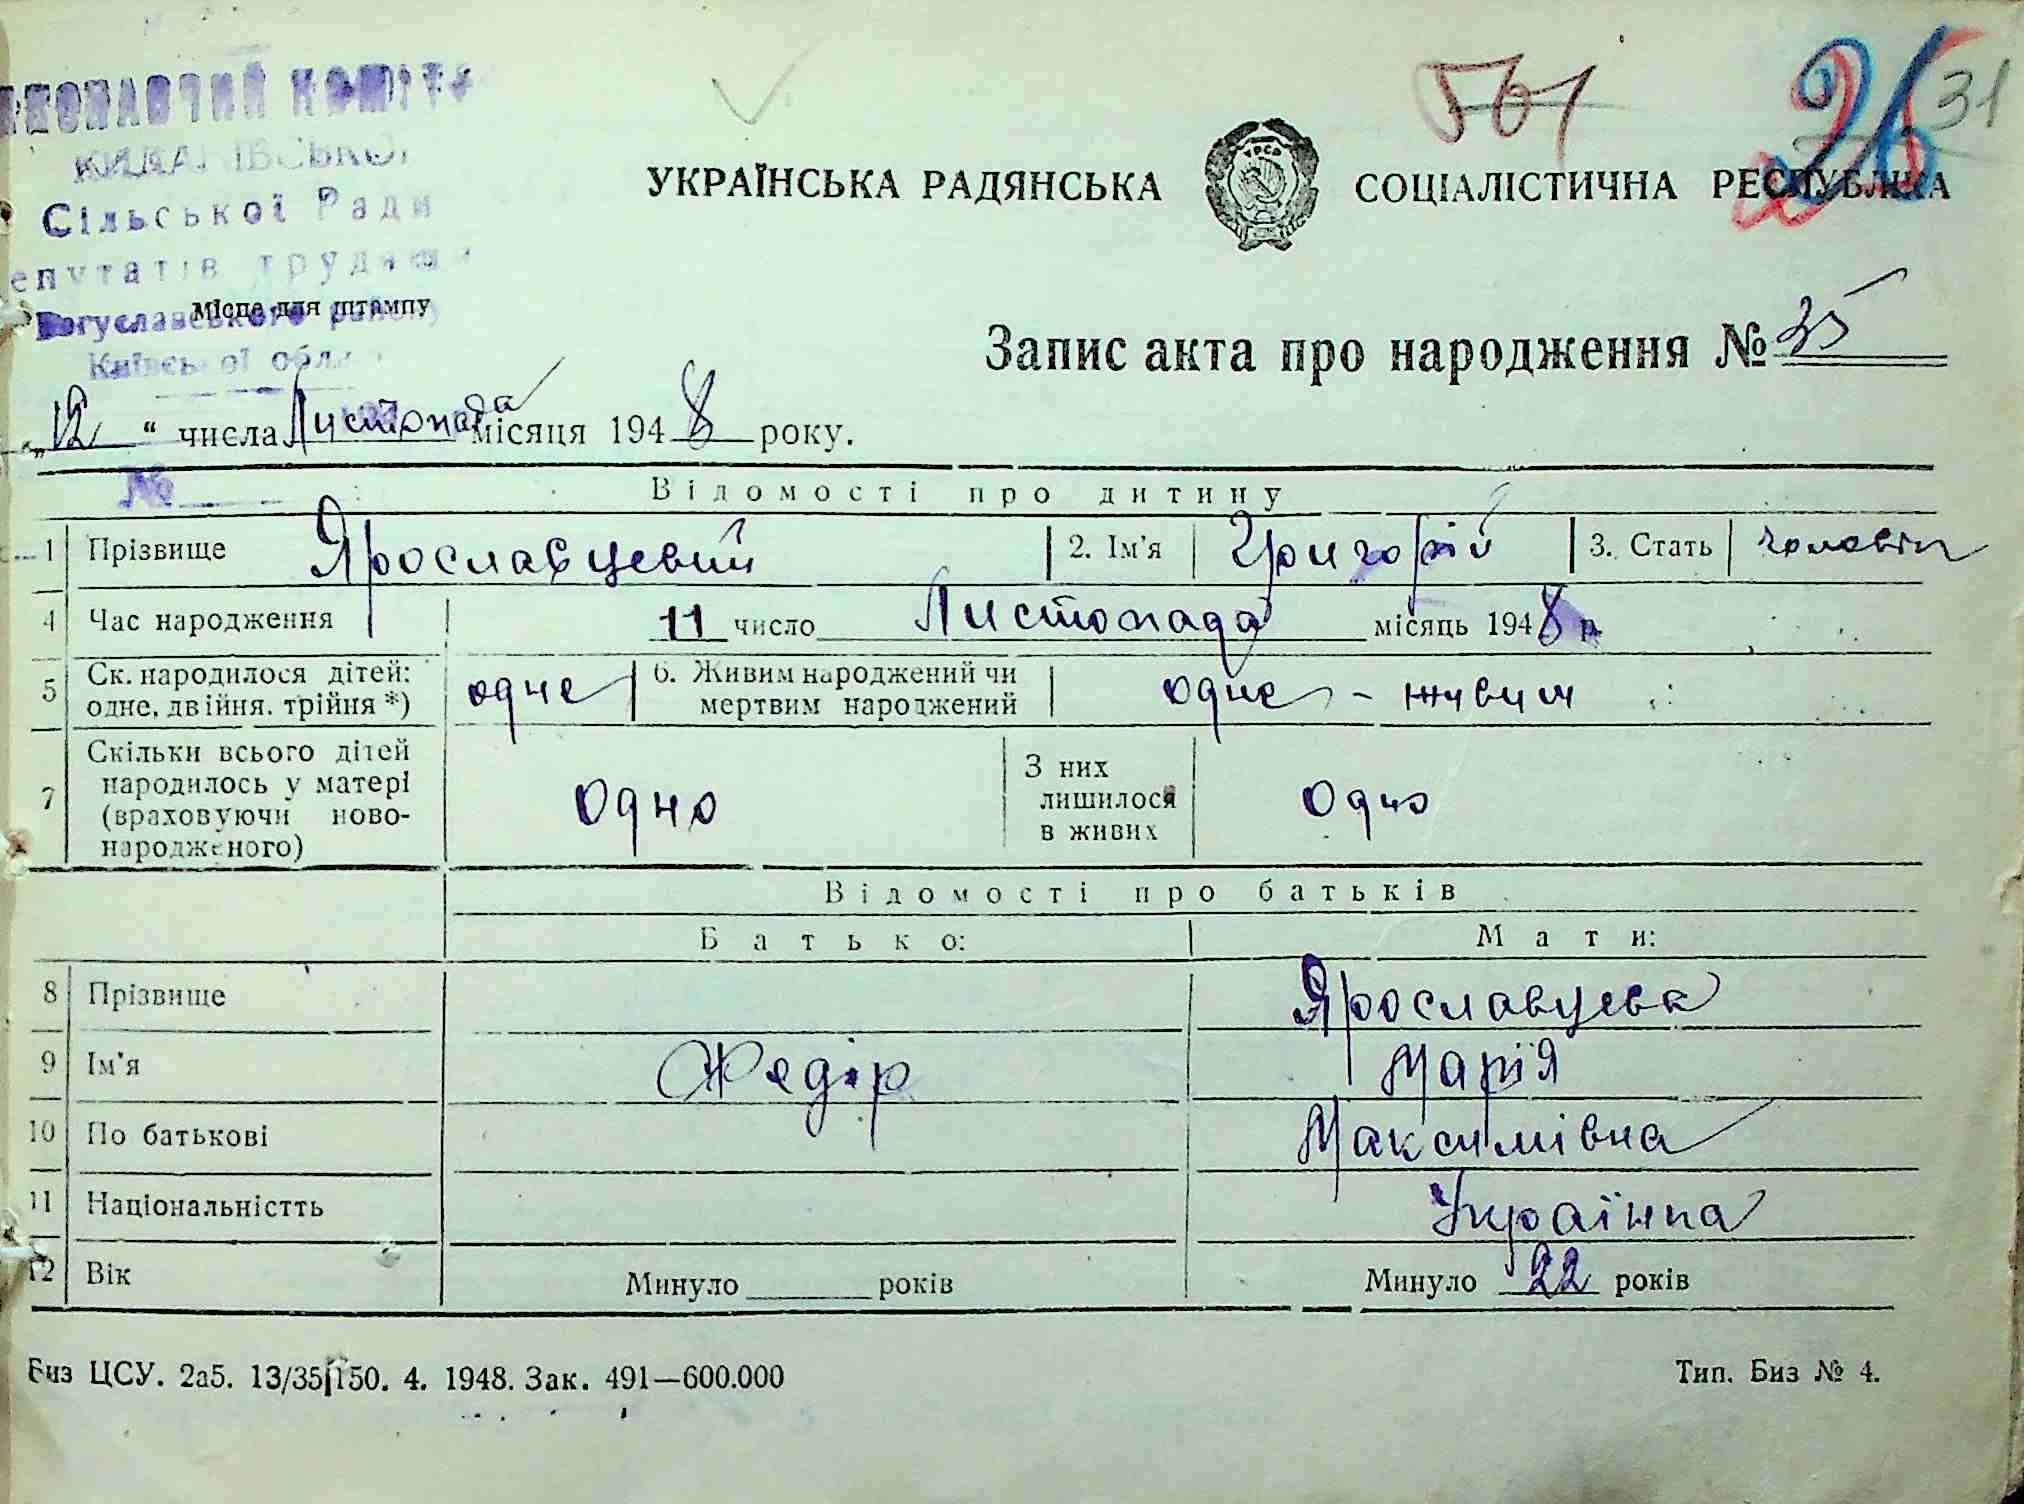 501 26 31
УКРАЇНСЬКА РАДЯНСЬКА СОЦІАЛІСТИЧНА РЕСПУБЛІКА
УРСР
Сільської Ради
Місце для штампу
Богуславського району
Київської обл.
Запис акта про народження № 35
„12“ числа Листопада місяця 1948 року.
№
Відомості про дитину
1 Прізвище Ярославцевий 2. Ім'я Григорій 3. Стать
4 Час народження 11 число Листопада місяць 1948 р.
5 Ск. народилося дітей: одне 6. Живим народжений чи одне - живим
одне, двійня, трійня *) мертвим народжений
7 Скільки всього дітей З них
народилось у матері одно лишилося одно
(враховуючи ново- в живих
народженого)
Відомості про батьків
Батько: Мати:
8 Прізвище Ярославцева
9 Ім'я Федір Марія
10 По батькові Максимівна
11 Національністть Українка
12 Вік Минуло ______ років Минуло 22 років
Биз ЦСУ. 2а5. 13/35 150. 4. 1948. Зак. 491—600.000 Тип. Биз № 4.